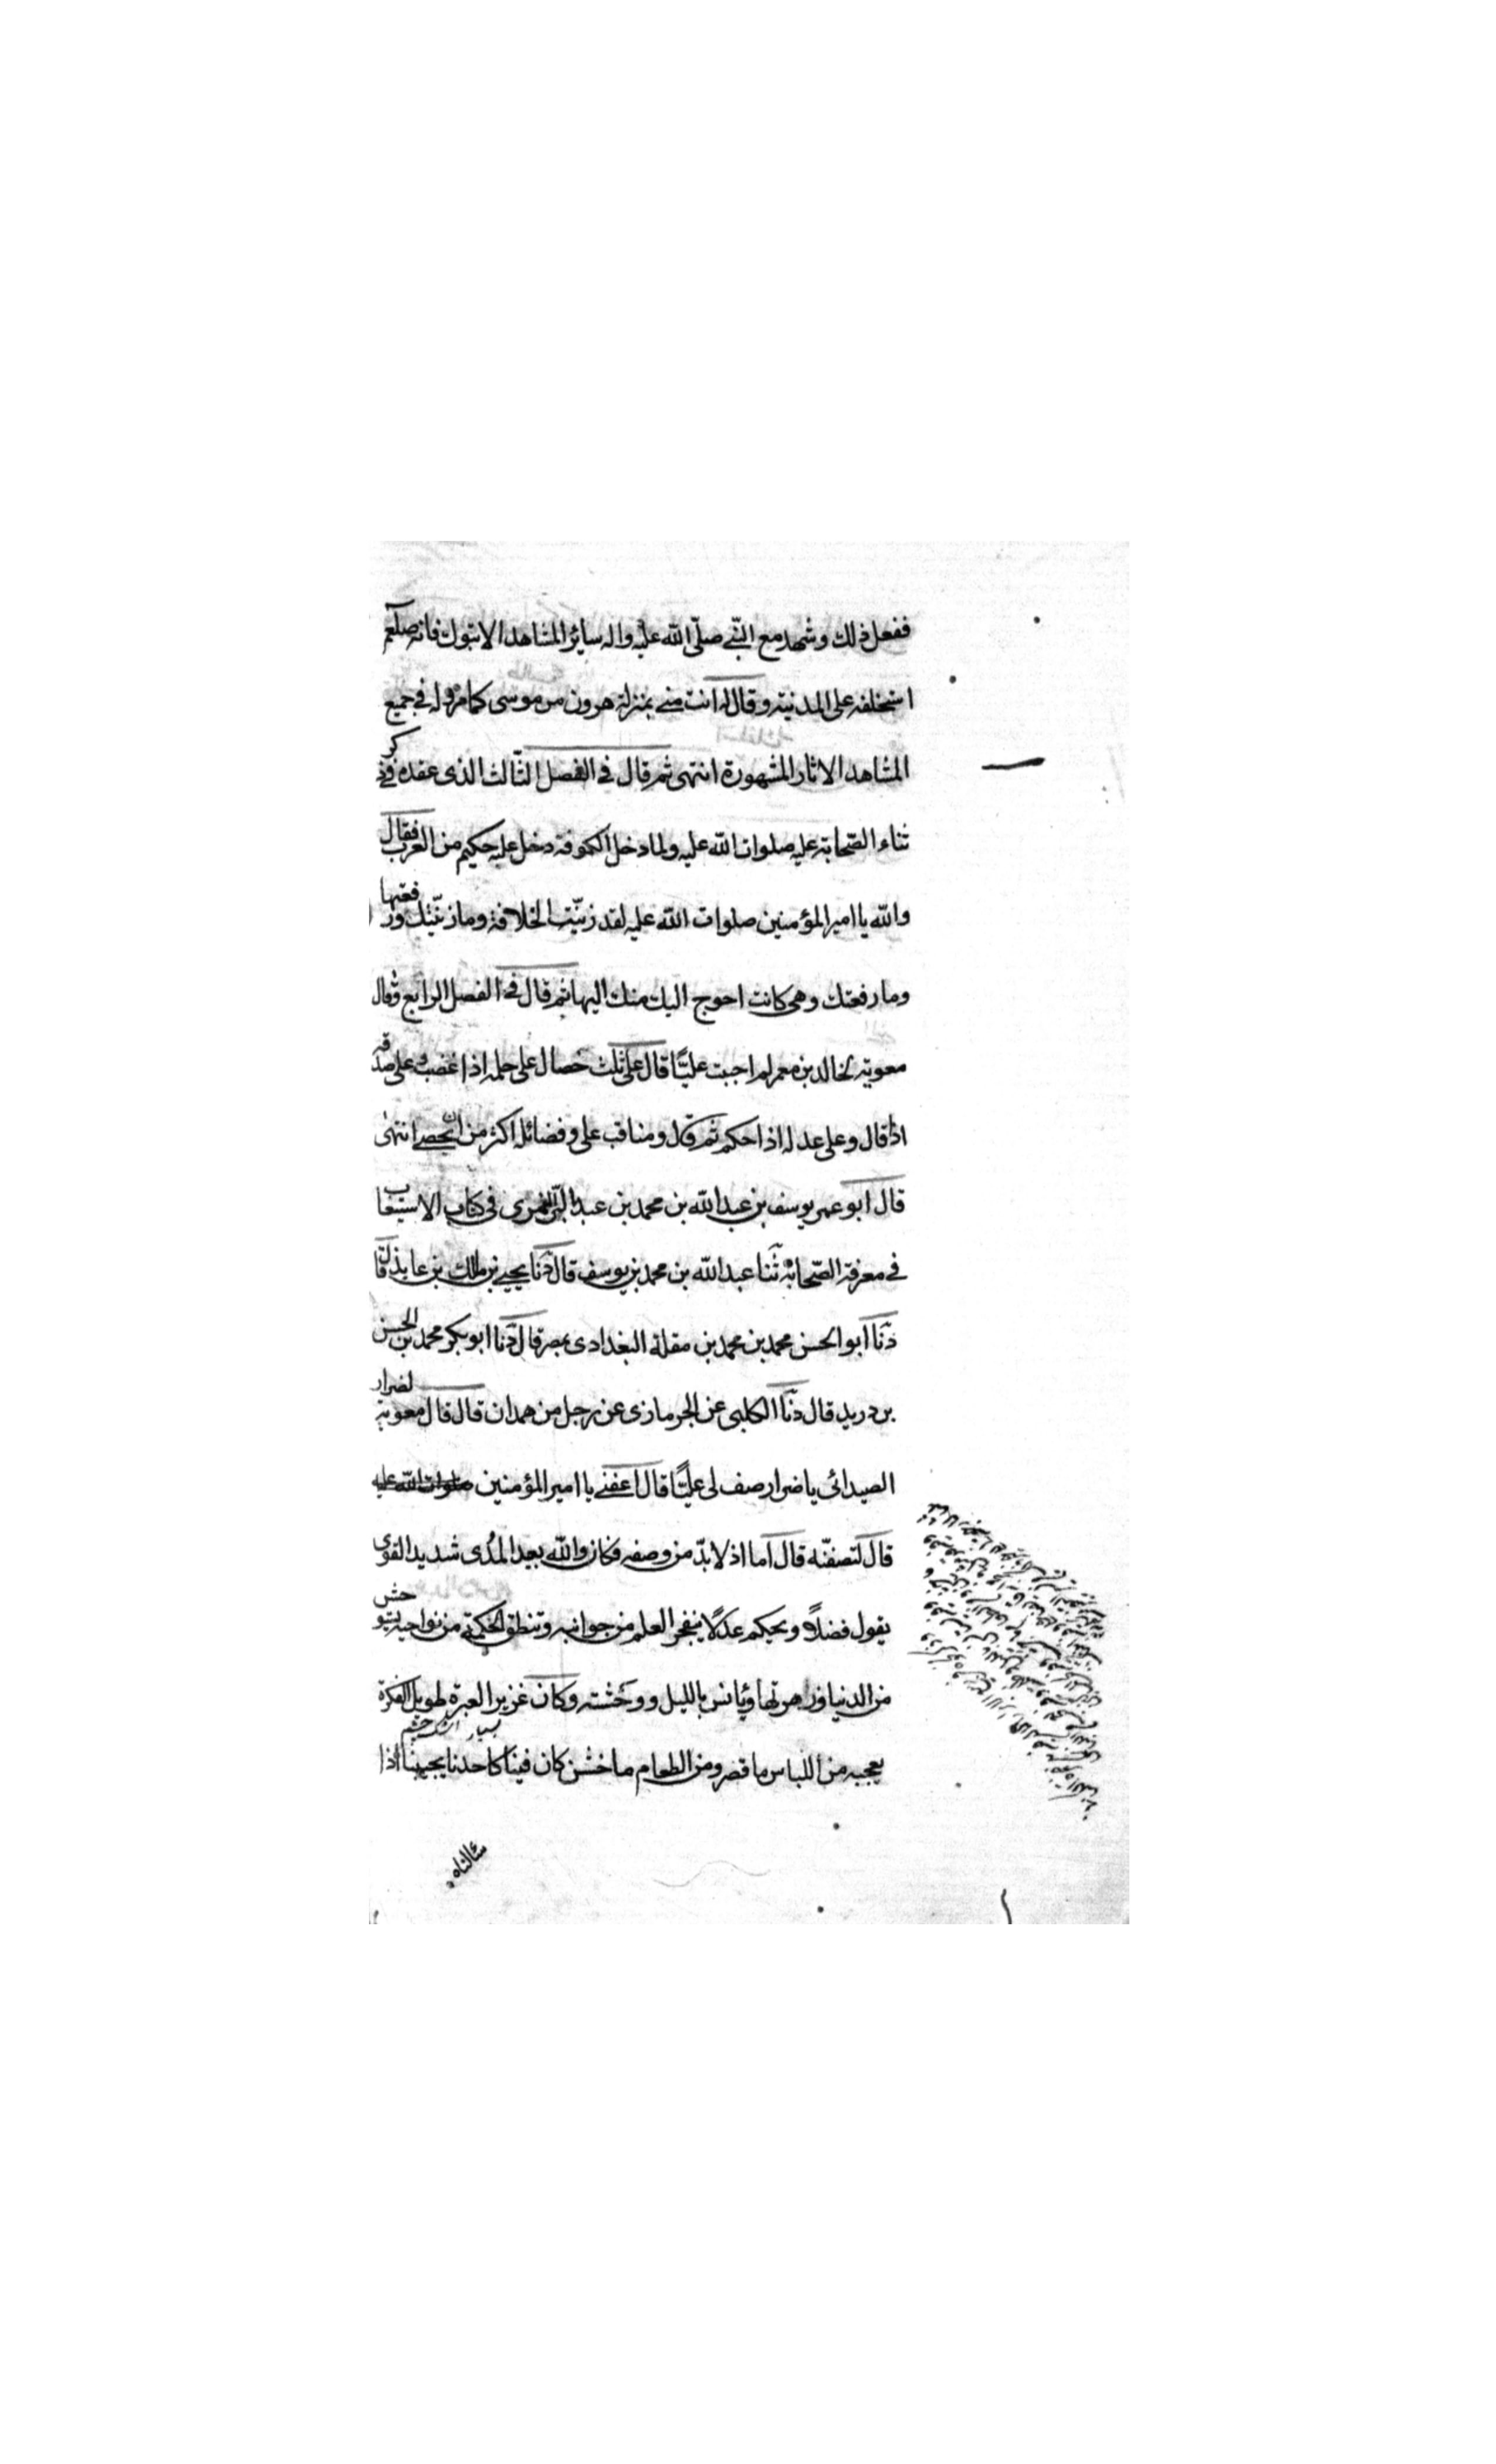 ففعل ذلك وشهد مع النّبي صلّى الله عليه واله سائر المشاهد الا تبوك فانه صلعم
استخلفه على المدينة وقال له انت مني بمنزلة هرون من موسى كما مر وله في جميع
المشاهد الاثار المشهورة انتهى ثم قال في الفصل الثّالث الذى عقده في ذكر
ثناء الصّحابة عليه صلوات الله عليه ولما دخل الكوفة دخل عليه حكيم من العرب فقال
والله يا امير المؤمنين صلوات الله عليه لقد زيّنت الخلافة وما زيّنتك ورفعتها
وما رفعتك وهى كانت احوج اليك منك اليها ثم قال في الفصل الرابع وقال
معوية لخالد بن معمر لم احببت عليًّا قال على ثلث خصال على حلمه اذا غضب وعلى صدقه
اذا قال وعلى عدله اذا حكم ثم قال ومناقب على وفضائله اكثر من ان يحصى انتهى
قال ابو عمر يوسف بن عبد الله بن محمد بن عبد البرّ النمرى في كتاب الاستيعاب
في معرفة الصّحابة ثنا عبد الله بن محمد بن يوسف قال دثنا يحيى بن مالك بن عابد قال
دثنا ابو الحسن محمد بن محمد بن مقلة البغدادى بمصر قال دثنا ابو بكر محمد بن الحسن
بن دريد قال دثنا العكلى عن الجرمازى عن رجل من همدان قال قال معوية لضرار
الصيدائى يا ضرار صف لى عليًّا قال اعفنى يا امير المؤمنين صلوات الله عليه
قال لتصفنّه قال اما اذ لا بدّ من وصفه فكان والله بعيد المدى شديد القوى
يقول فضلًا ويحكم عدلًا ينفجر العلم من جوانبه وتنطق الحكمة من نواحيه يتوحش
من الدنيا وزهرتها ويانس بالليل ووحشته وكان غزير العبرة طويل الفكرة
يعجبه من اللباس ما قصر ومن الطعام ما خشن كان فينا كاحدنا يجيبنا اذا
سئالناه